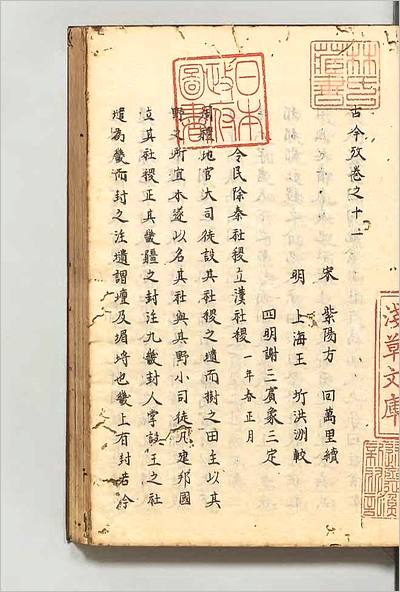 古今攷卷之十一
宋 紫陽方 回萬里續
明 上海王 圻洪洲較
四明謝三賓象三定
令民除秦社稷立漢社稷 一年春正月
周禮地官大司徒設其社稷之壝而樹之田主以其
野之所宜木遂以名其社與其野小司徒凡建邦國
立其社稷正其畿疆之封注九畿封人掌設王之社
壝為畿而封之注壝謂壇及堳埒也畿上有封若今
林氏藏書
日本政府圖書
淺草文庫